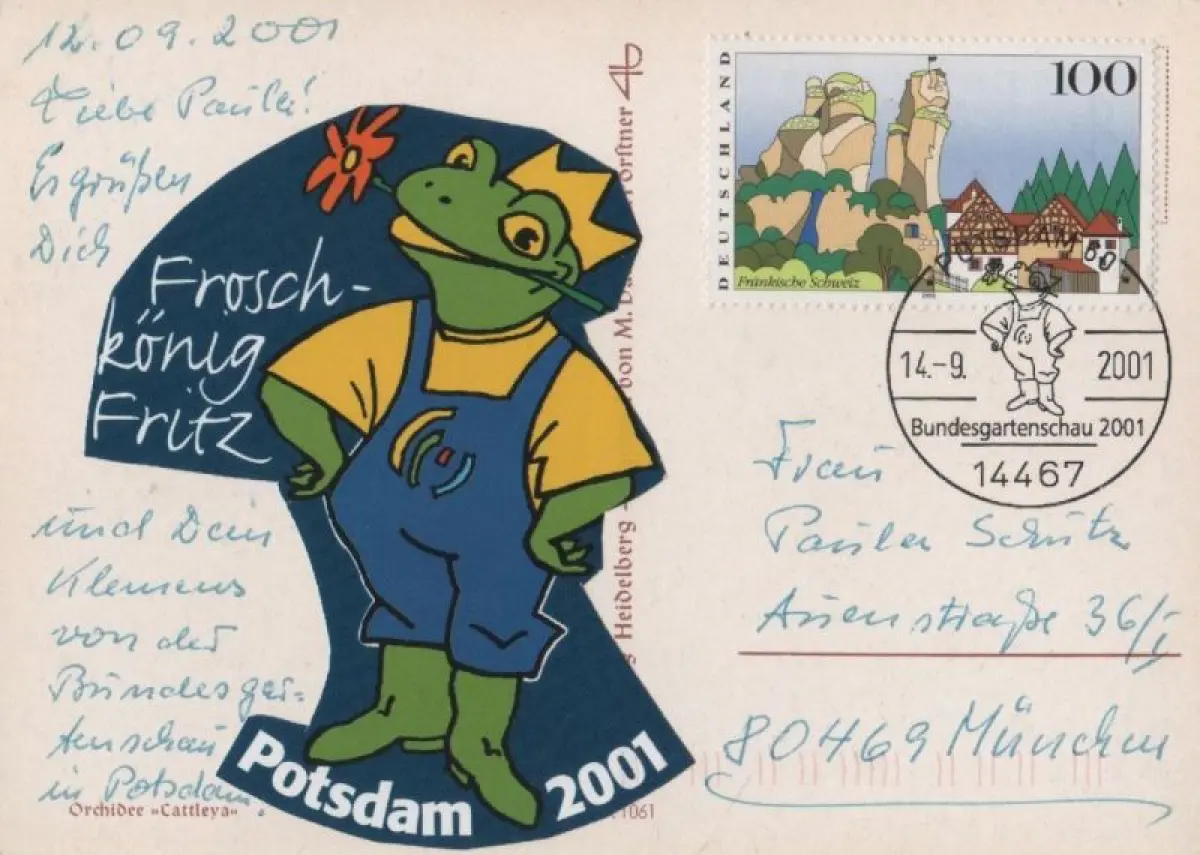 12.09.2001
Liebe Paula!
Es grüßen
Dich
Frosch-
könig
Fritz
und Dein
Klemens
von der
Bundesgar-
tenschau
in Potsdam
Orchidee »Cattleya«
Potsdam 2001
1061
Heidelberg
von M.
DEUTSCHLAND
100
Fränkische Schweiz
POTSDAM
14.-9. 2001
Bundesgartenschau 2001
14467
Frau
Paula Schütz
Auenstraße 36/I
80469 München